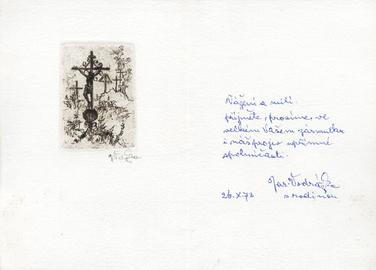 Vážení a milí.
přijměte, prosíme, ve
velkém Vašem zármutku
i náš projev upřímné
spoluúčasti.
Jar. Vodrážka
26.X.73 s rodinou
Vodrážka